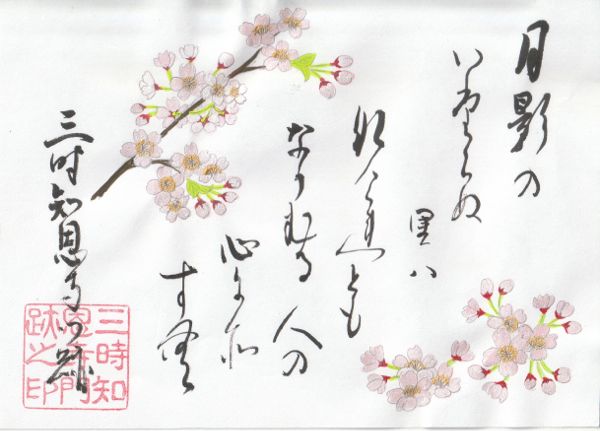 月影の
いたらぬ
里ハ
なけれとも
なかむる 人の
心にそ
すむ
三時知恩寺門跡
三時知
恩寺門
跡之印